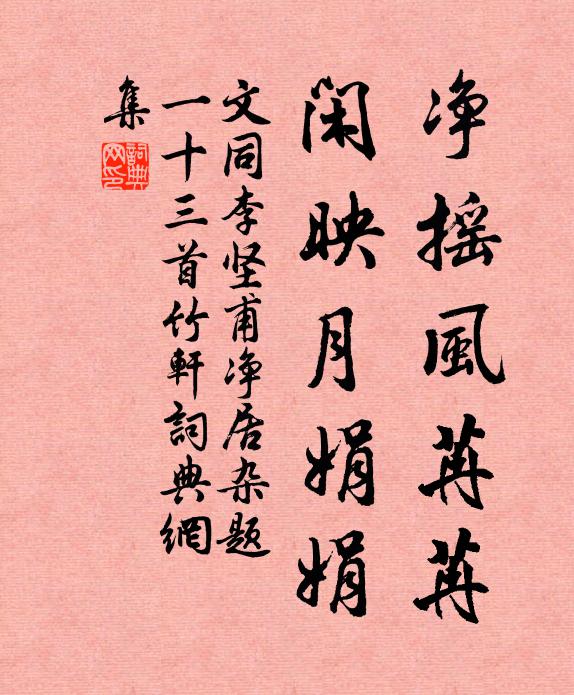 净摇風苒苒
闲映月娟娟
文同李坚甫净居杂题
一十三首竹軒詞典網
集
詞典
网印